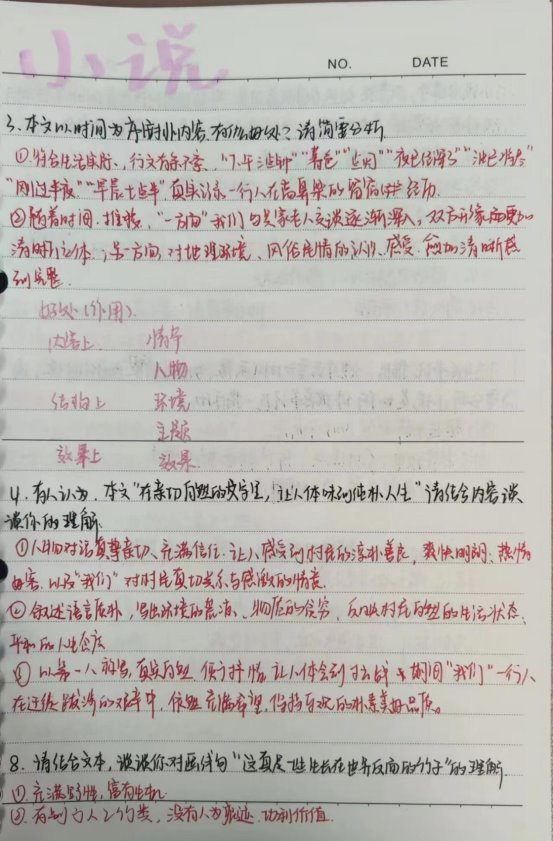 小说
NO. DATE
3、本文以时间为序安排内容,有什么好处?请简要分析
①符合生活实际、行文有条不紊、"下午" "暮色" "夜已很深了"
"刚过半夜" "早晨七点半" 真实记录一行人在苗寨的宿营经历
②随着时间推移,"一方面"我们与老人交谈逐渐深入,双方形象更加
清晰立体,另一方面,对地理环境、风俗民情的认识、感受愈加清晰感
到完整
好处(作用)
内容上 情节
人物
结构上 环境
主题
效果上 效果
4、有人认为,本文"在亲切自然的文字里,让人体味到纯朴人生"请结合内容谈
谈你的理解
①人物对话真挚亲切、充满信任,让人感受到村民的淳朴善良,爽快明朗、热情
好客,以及"我们"对村民真切关心与感激的情意
②叙述语言质朴,写出环境的荒凉、物质的贫穷,反映村民自然的生活状态、
平和的人生态度
③以第一人称写,真实自然,便于抒情,让人体会到抗战时期"我们"一行人
在迁徙跋涉的艰辛中,依然充满希望,保持乐观的朴素美好品质。
8、请结合文本,谈谈你对画线句"这真是一些生长在世界反面的竹子"的理解
①充满野性,富有生机
②有别于人工的美,没有人为痕迹、功利价值